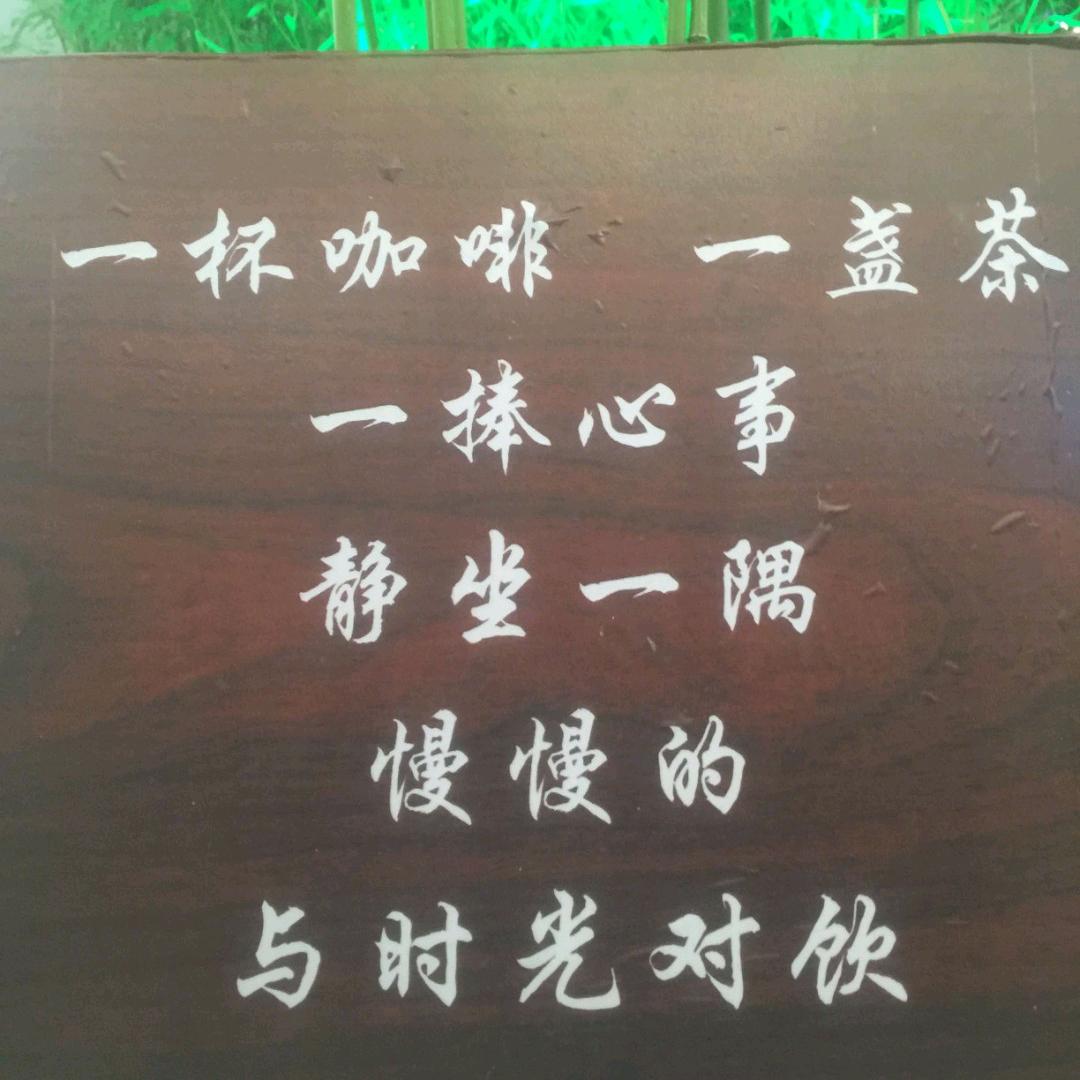 一杯咖啡 一盏茶
一捧心事
静坐一隅
慢慢的
与时光对饮